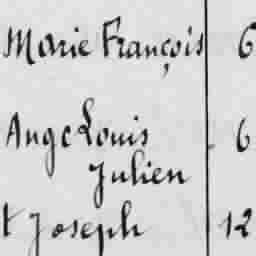 Marie François 6
Ange Louis 6
Julien
t Joseph 12